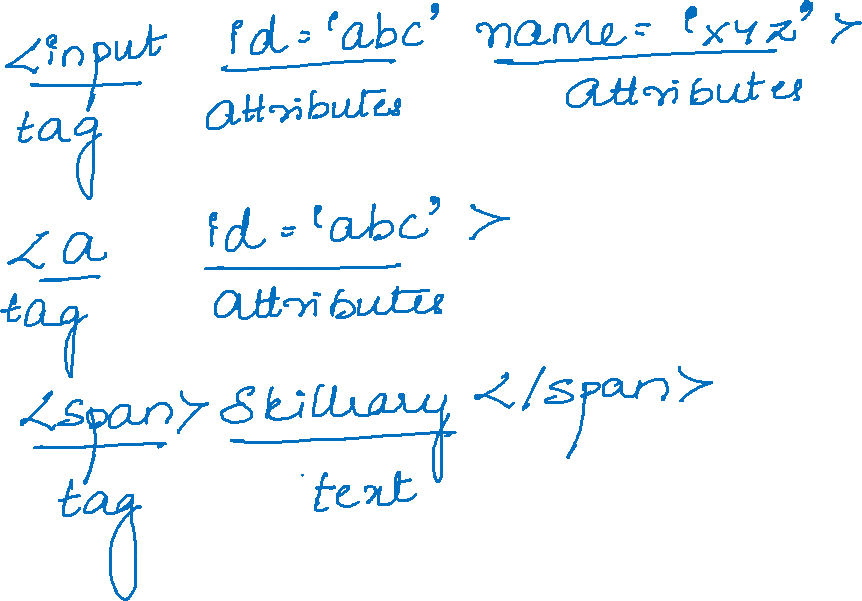 <input id='abc' name='xyz'>
tag attributes attributes
<a id='abc'>
tag attributes
<span>Skillrary</span>
tag text